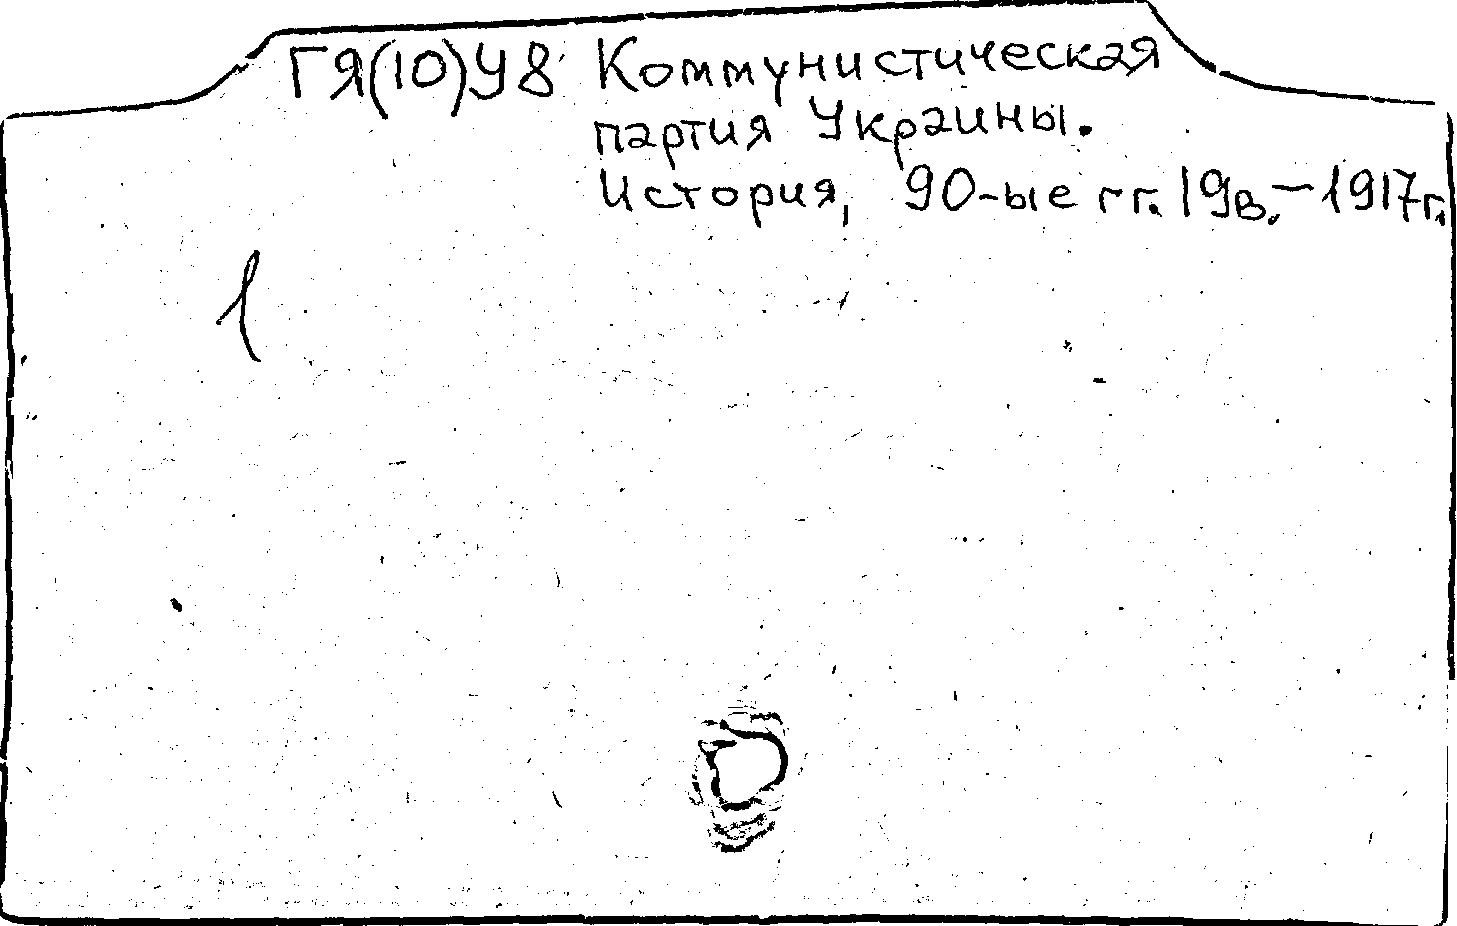 ГЯ(10)У8 Коммунистическая
партия Украины.
История, 90-ые гг. 19в.–1917г.
1